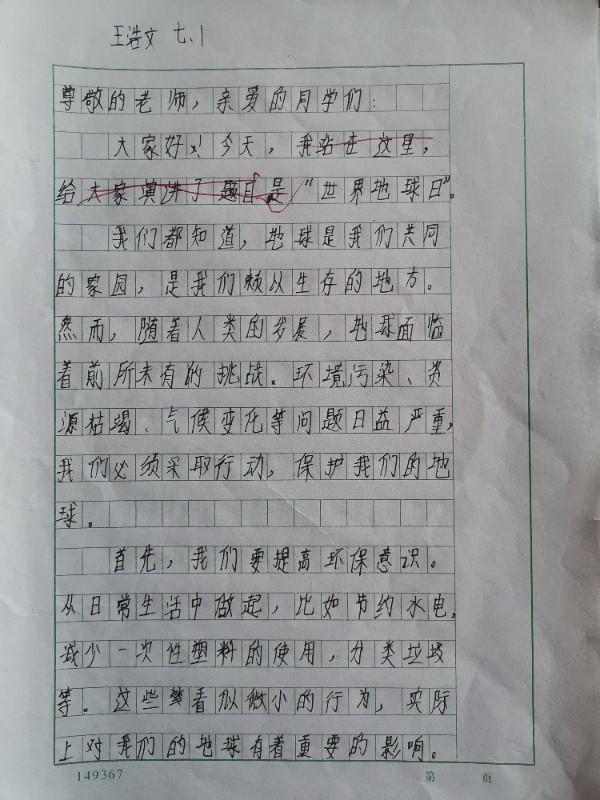 王浩文 七.1
尊敬的老师，亲爱的同学们：
大家好！今天，我站在这里，
给大家演讲了题目是“世界地球日”。
我们都知道，地球是我们共同
的家园，是我们赖以生存的地方。
然而，随着人类的发展，地球面临
着前所未有的挑战。环境污染、资
源枯竭、气候变化等问题日益严重，
我们必须采取行动，保护我们的地
球。
首先，我们要提高环保意识。
从日常生活中做起，比如节约水电，
减少一次性塑料的使用，分类垃圾
等。这些看似微小的行为，实际
上对我们的地球有着重要的影响。
149367 第 页